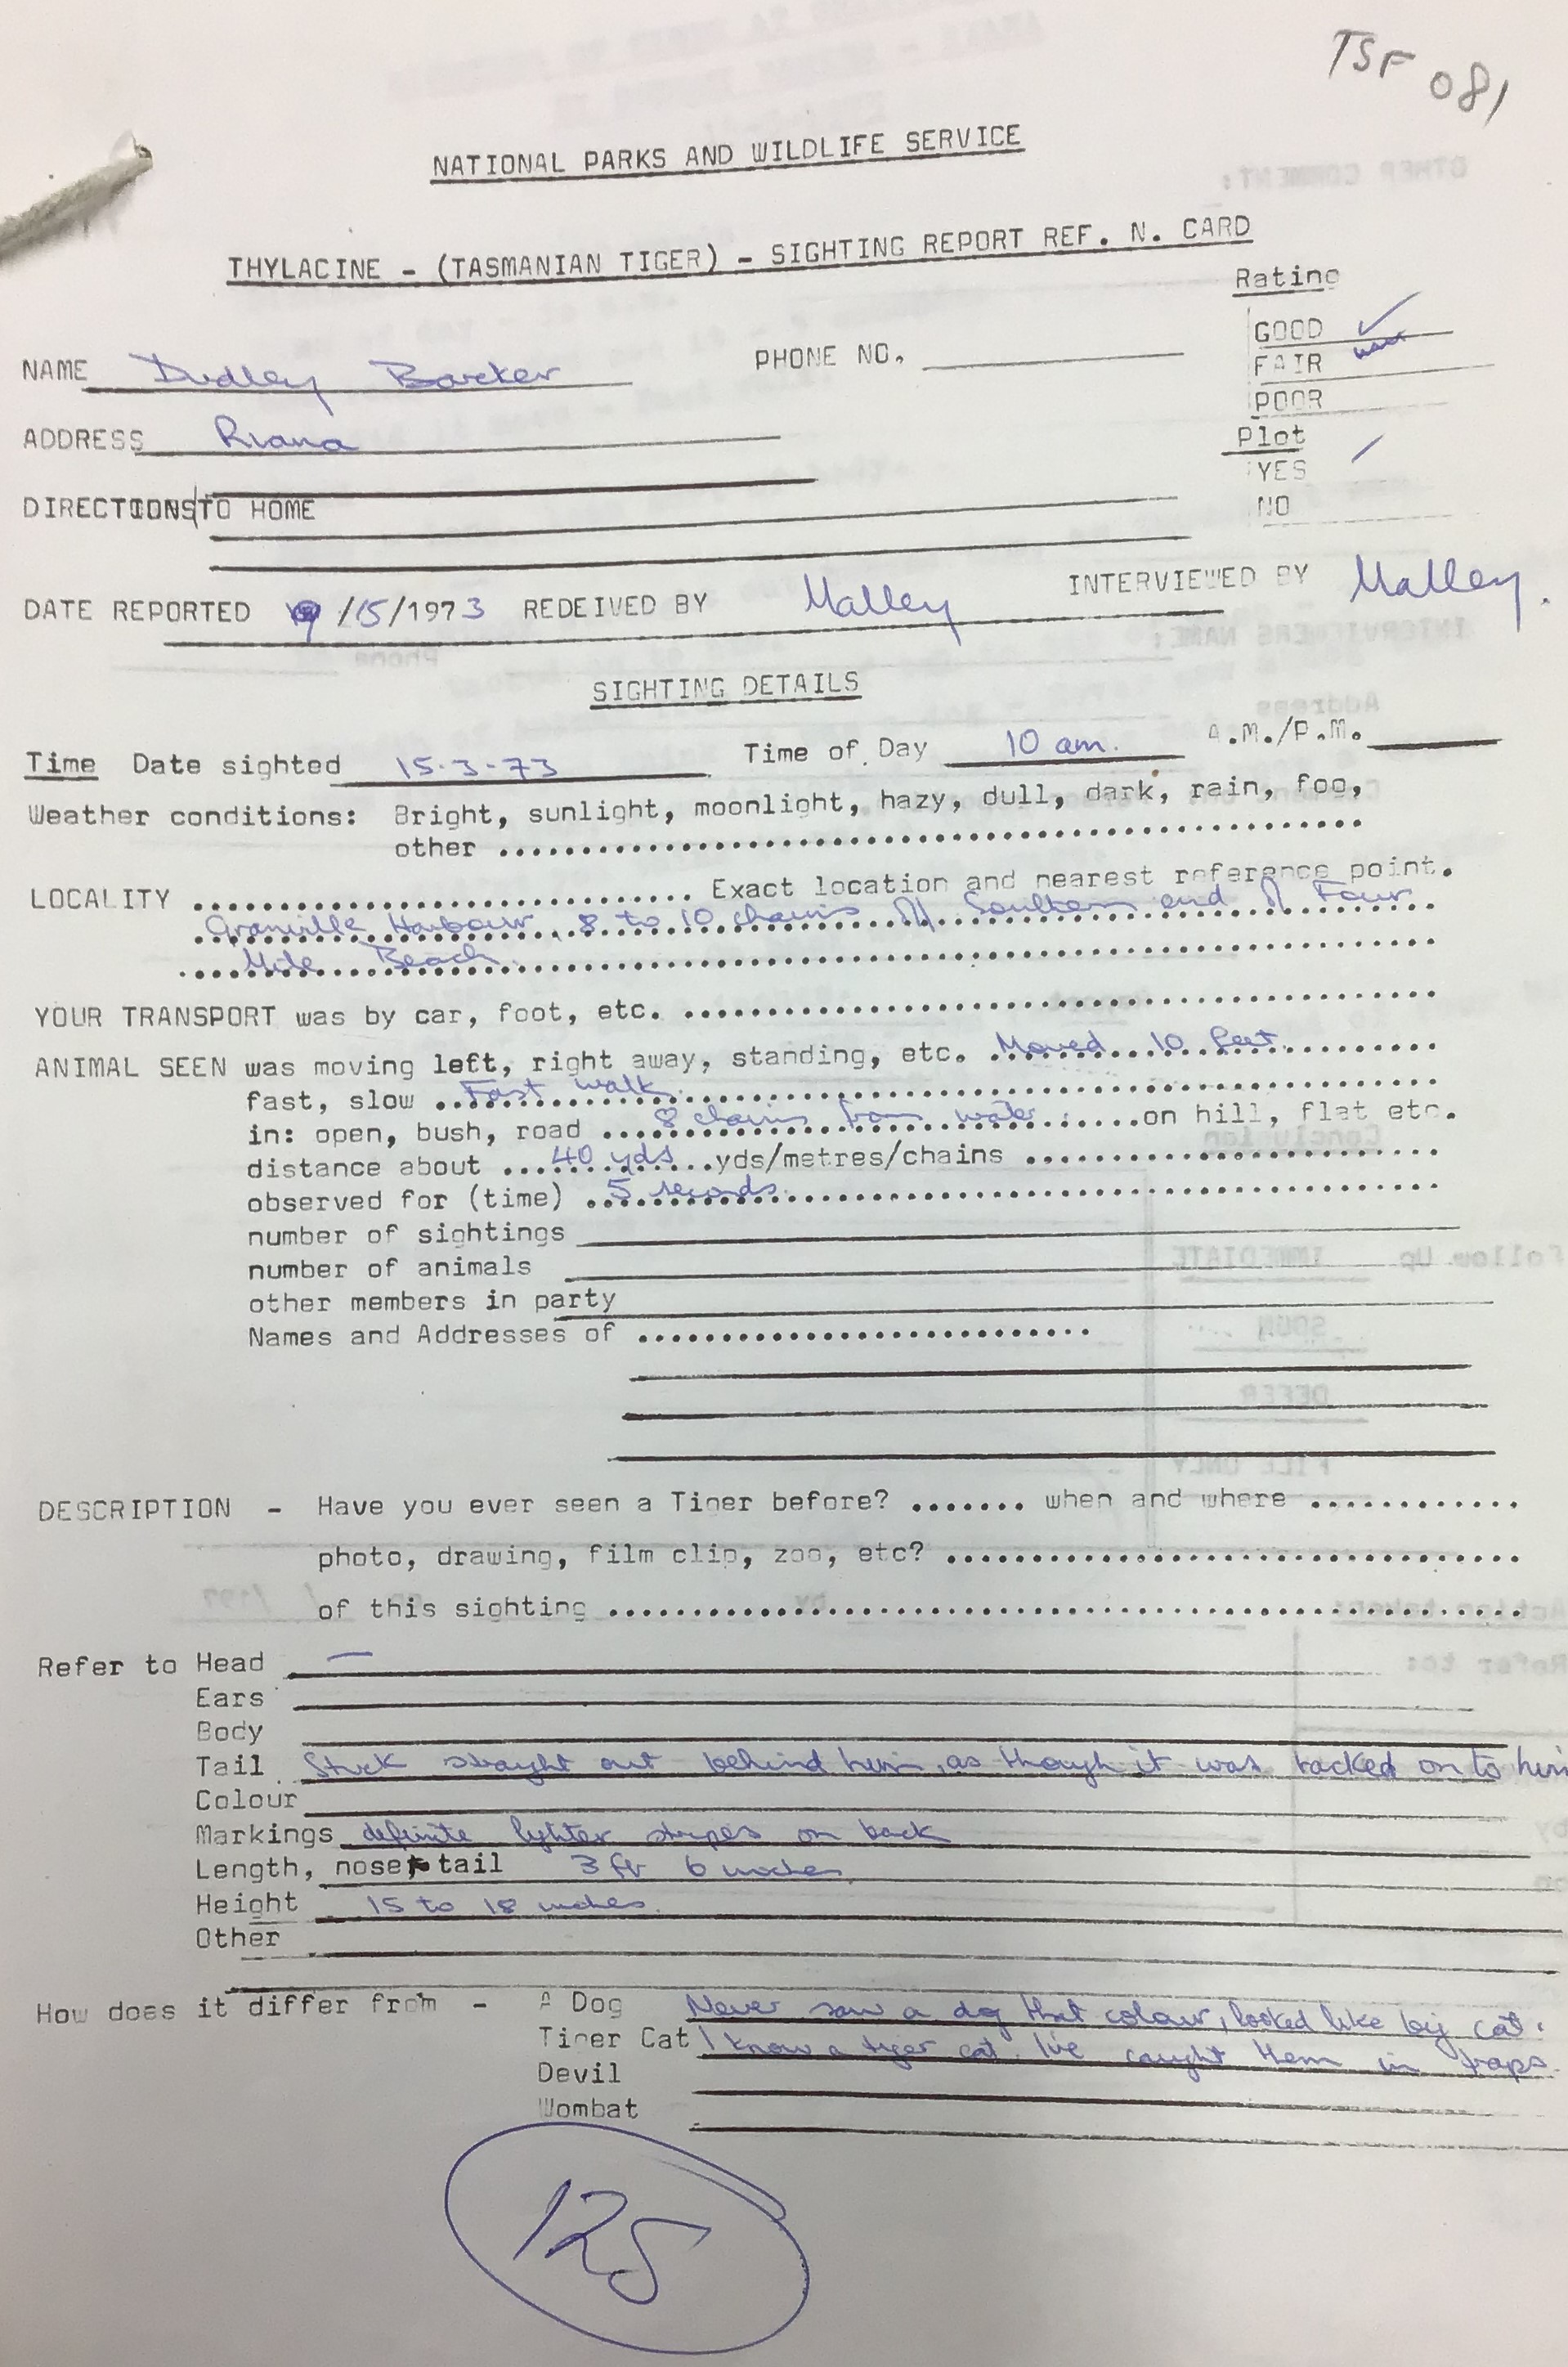 TSF 081
NATIONAL PARKS AND WILDLIFE SERVICE
THYLACINE - (TASMANIAN TIGER) - SIGHTING REPORT REF. N. CARD
Rating
GOOD ✓
FAIR
POOR
NAME Dudley Barker PHONE NO.
ADDRESS Riana
Plot
YES ✓
NO
DIRECTIONS TO HOME
DATE REPORTED 9/15/1973 REDEIVED BY Malley INTERVIEWED BY Malley.
SIGHTING DETAILS
Time Date sighted 15-3-73 Time of Day 10 am. A.M./P.M.
Weather conditions: Bright, sunlight, moonlight, hazy, dull, dark, rain, fog,
other
LOCALITY Exact location and nearest reference point.
Granville Harbour, 8 to 10 chains Southern end of Four
Mile Beach.
YOUR TRANSPORT was by car, foot, etc.
ANIMAL SEEN was moving left, right away, standing, etc. Moved 10 feet
fast, slow Fast walk
in: open, bush, road 8 chains from water on hill, flat etc.
distance about 40 yds yds/metres/chains
observed for (time) 5 seconds
number of sightings
number of animals
other members in party
Names and Addresses of
DESCRIPTION - Have you ever seen a Tiger before? when and where
photo, drawing, film clip, zoo, etc?
of this sighting
Refer to Head —
Ears
Body
Tail Stuck straight out behind him, as though it was tacked on to him
Colour
Markings definite lighter stripes on back
Length, nose tail 3 ft 6 inches
Height 15 to 18 inches.
Other
How does it differ from - A Dog Never saw a dog that colour, looked like big cat.
Tiger Cat I know a tiger cat. I've caught them in traps.
Devil
Wombat
125